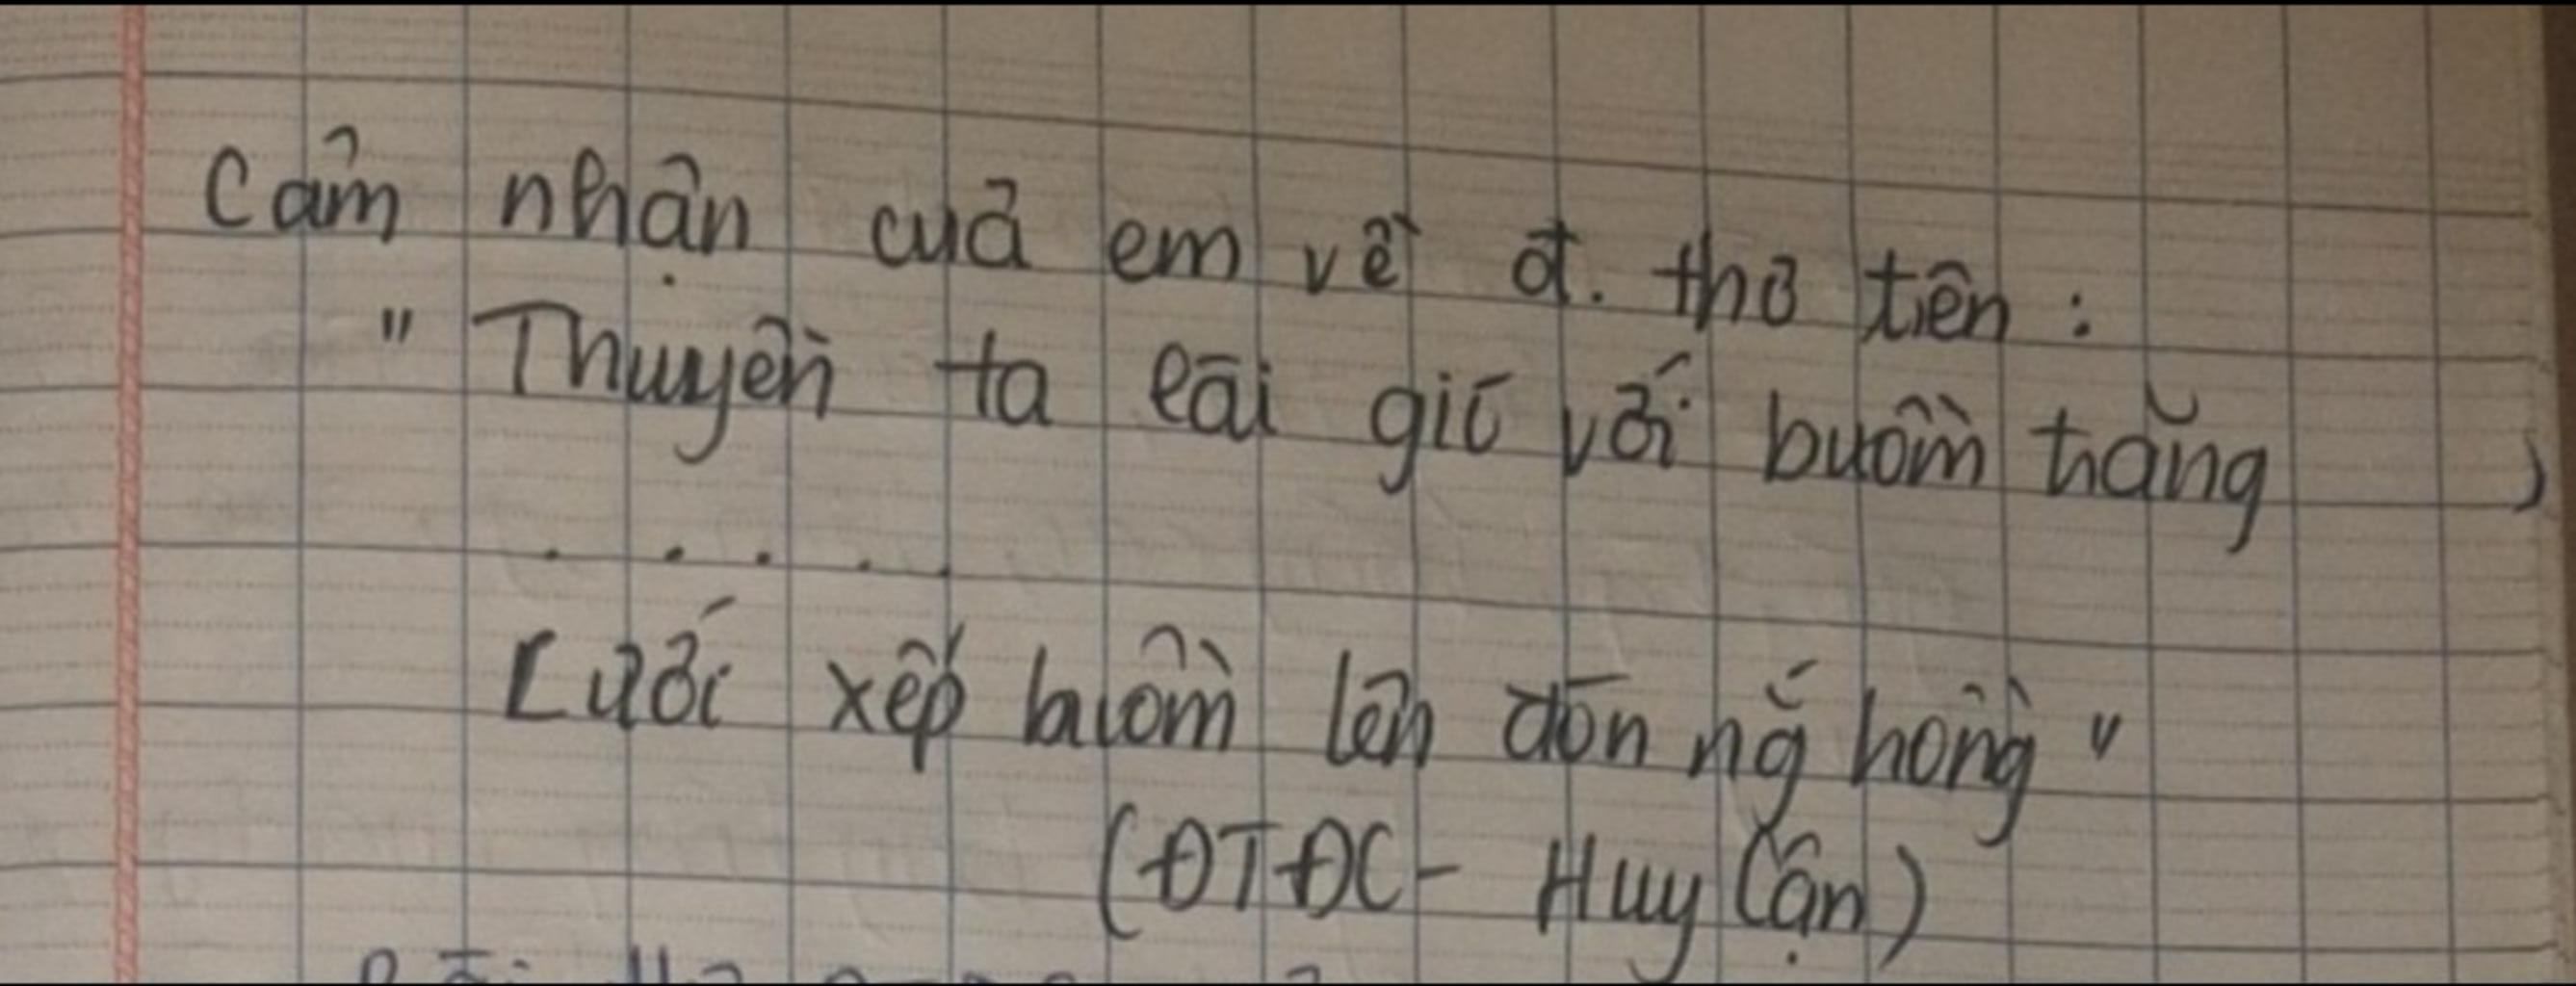 Cảm nhận cuả em về đ. thơ tiên :
" Thuyền ta lái gió với buồm trăng
. . . . .
Lưới xếp buồm lên đón nắg hồng "
(ĐTĐC - Huy Cận)